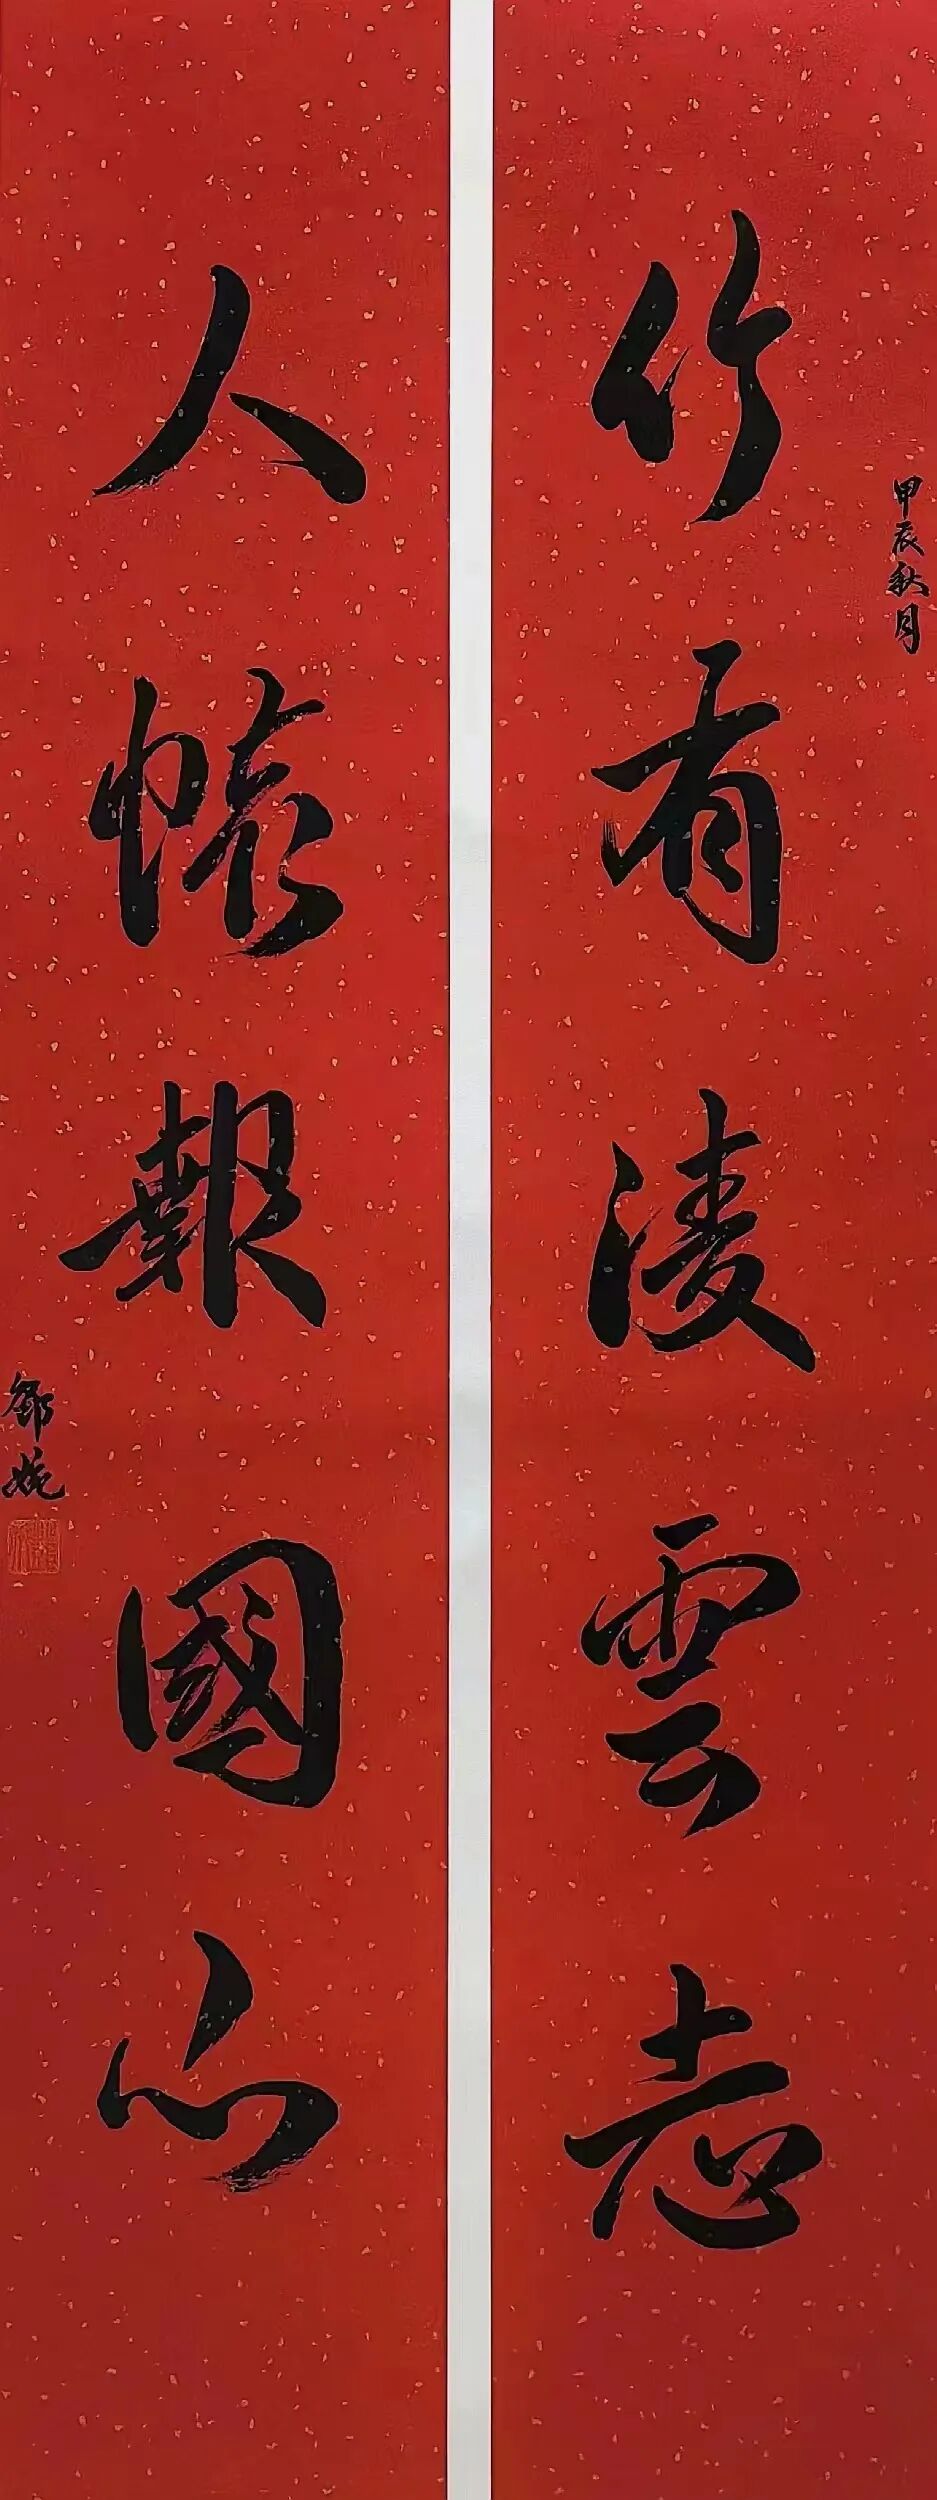 甲辰秋月
竹有凌雲志
人懷報國心
邵婉